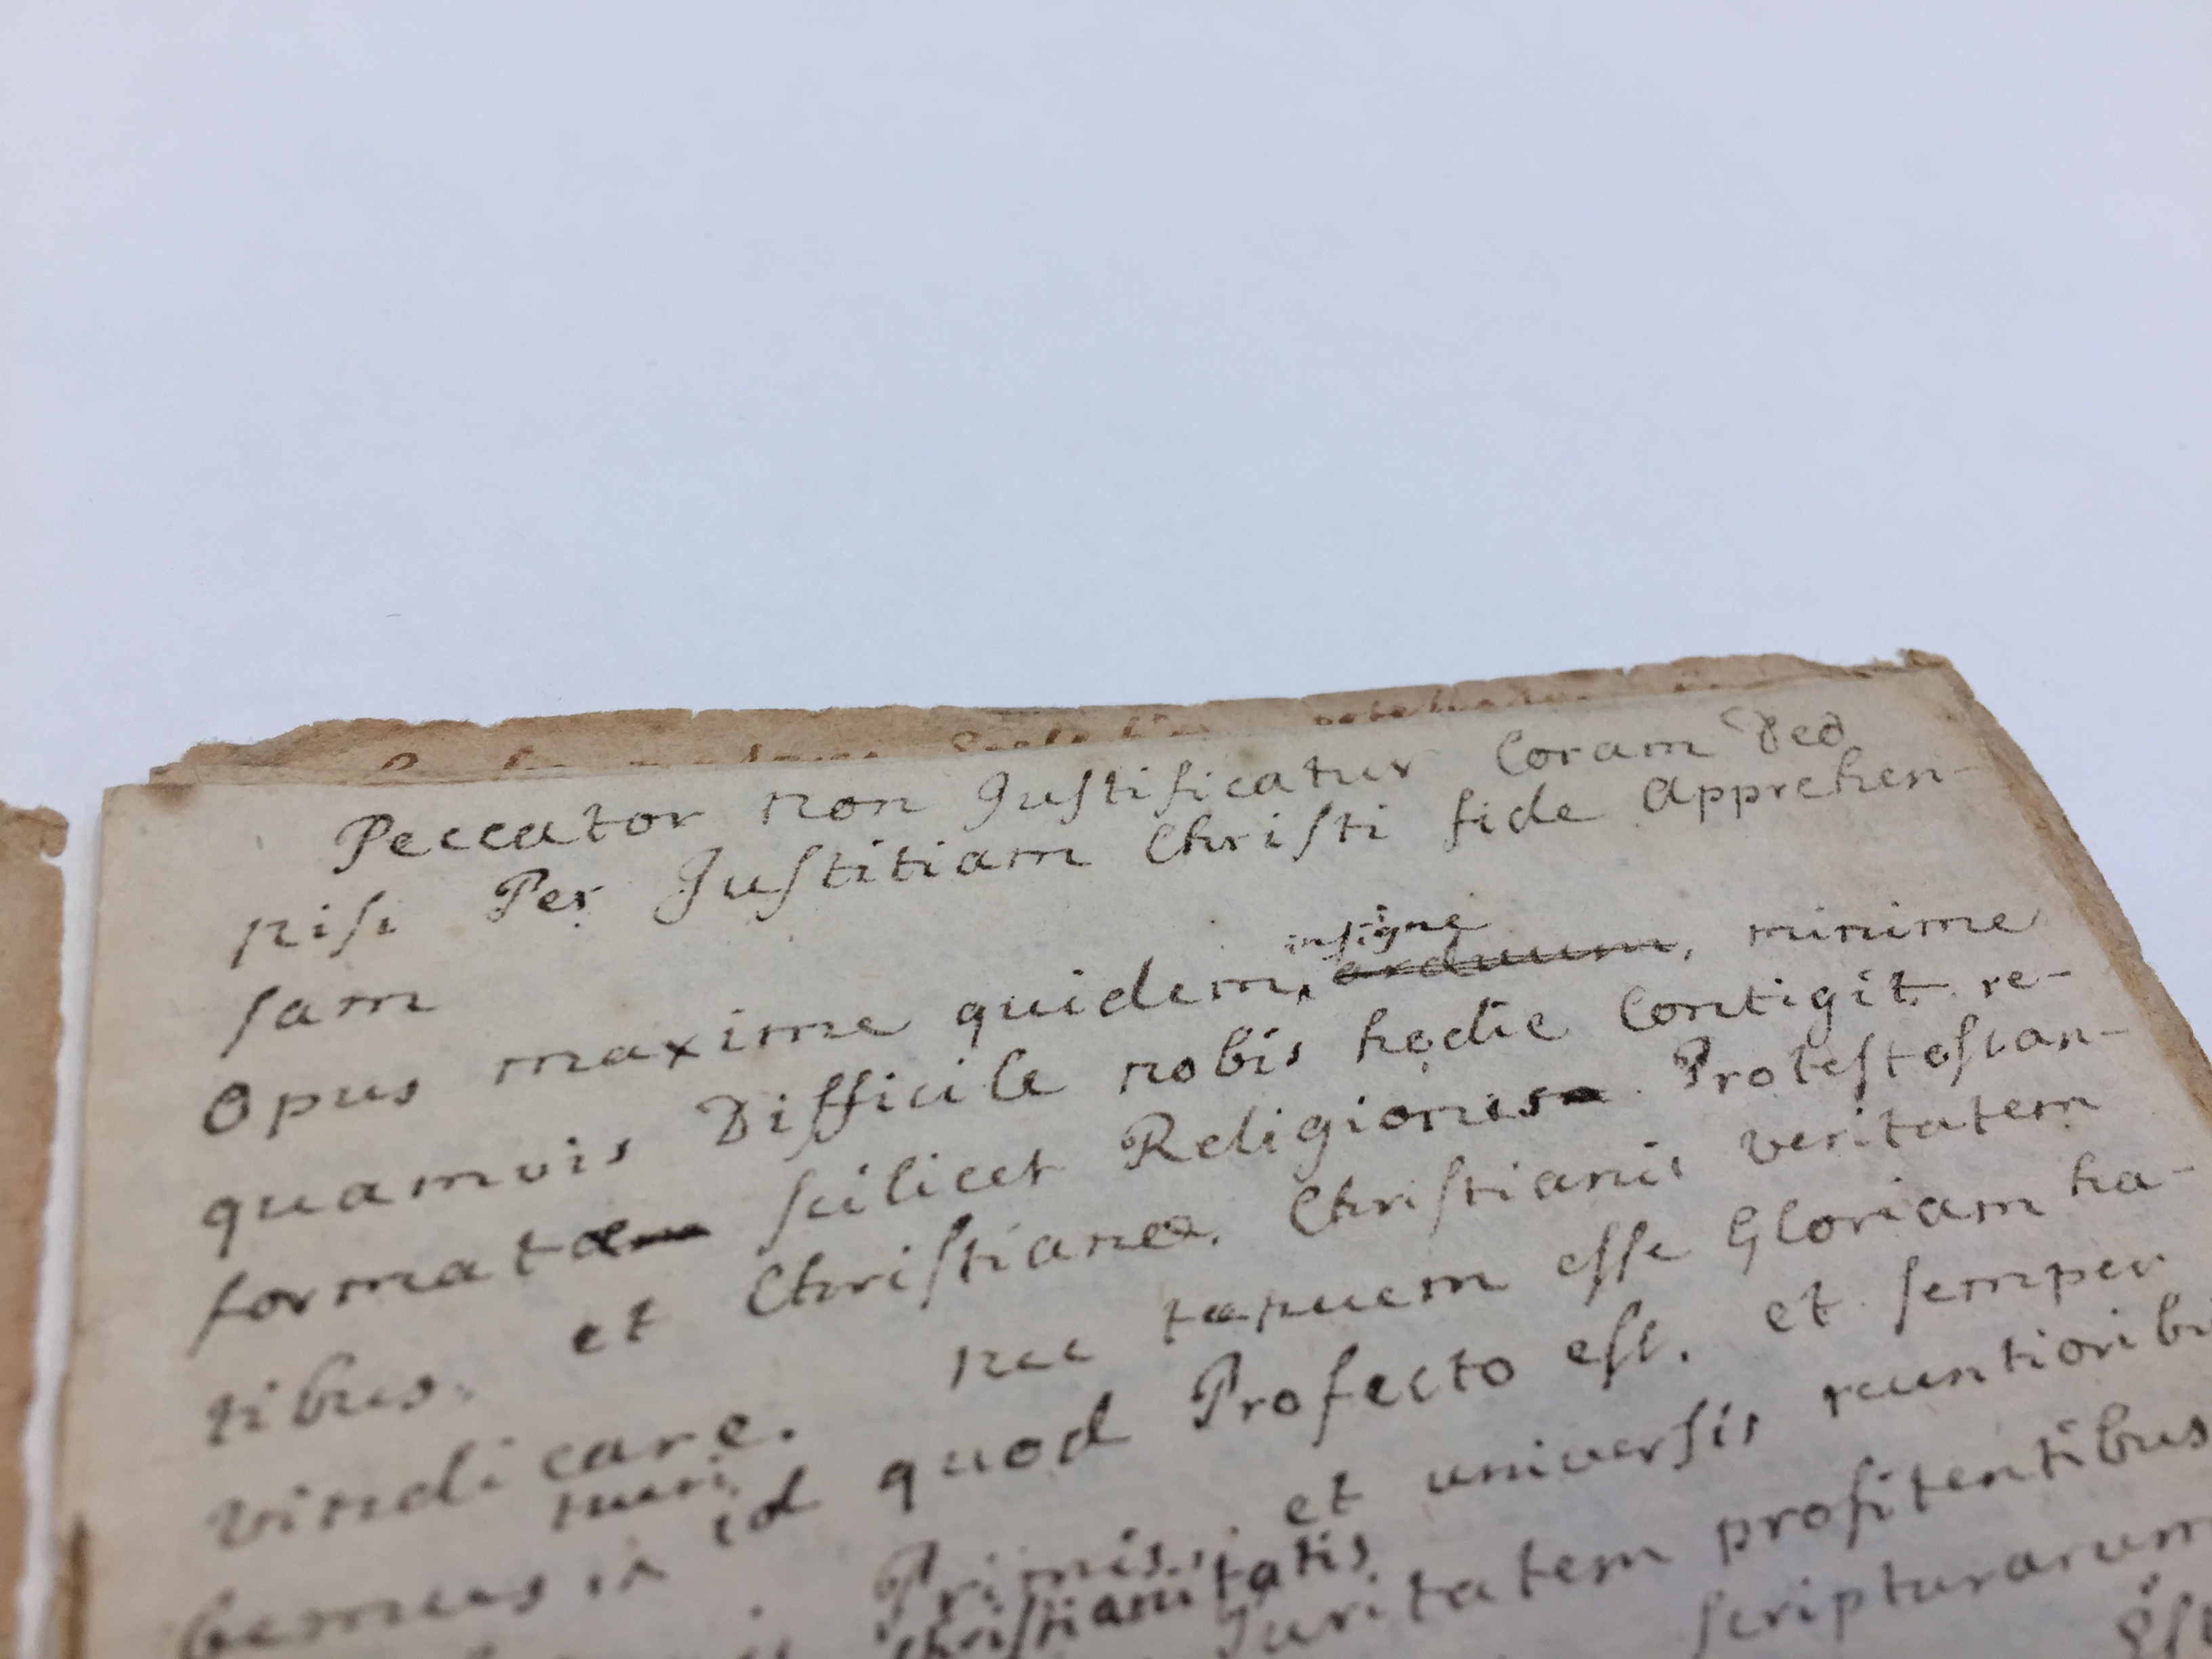 Peccator non Justificatur Coram Deo
nisi Per Justitiam Christi fide Apprehen-
sam
insigne
Opus maxime quidem, arduum, minime
quamvis Difficile nobis hodie Contigit re-
formatæ scilicet Religionis Protestostan-
tibus, et Christianæ, Christianis veritatem
vindicare. nec tenuem esse Gloriam ha-
tueri
bemus in id quod Profecto est, et semper
Primis, et universis recentiorib
Christianitatis
Puritatem profitentibus
scripturarum